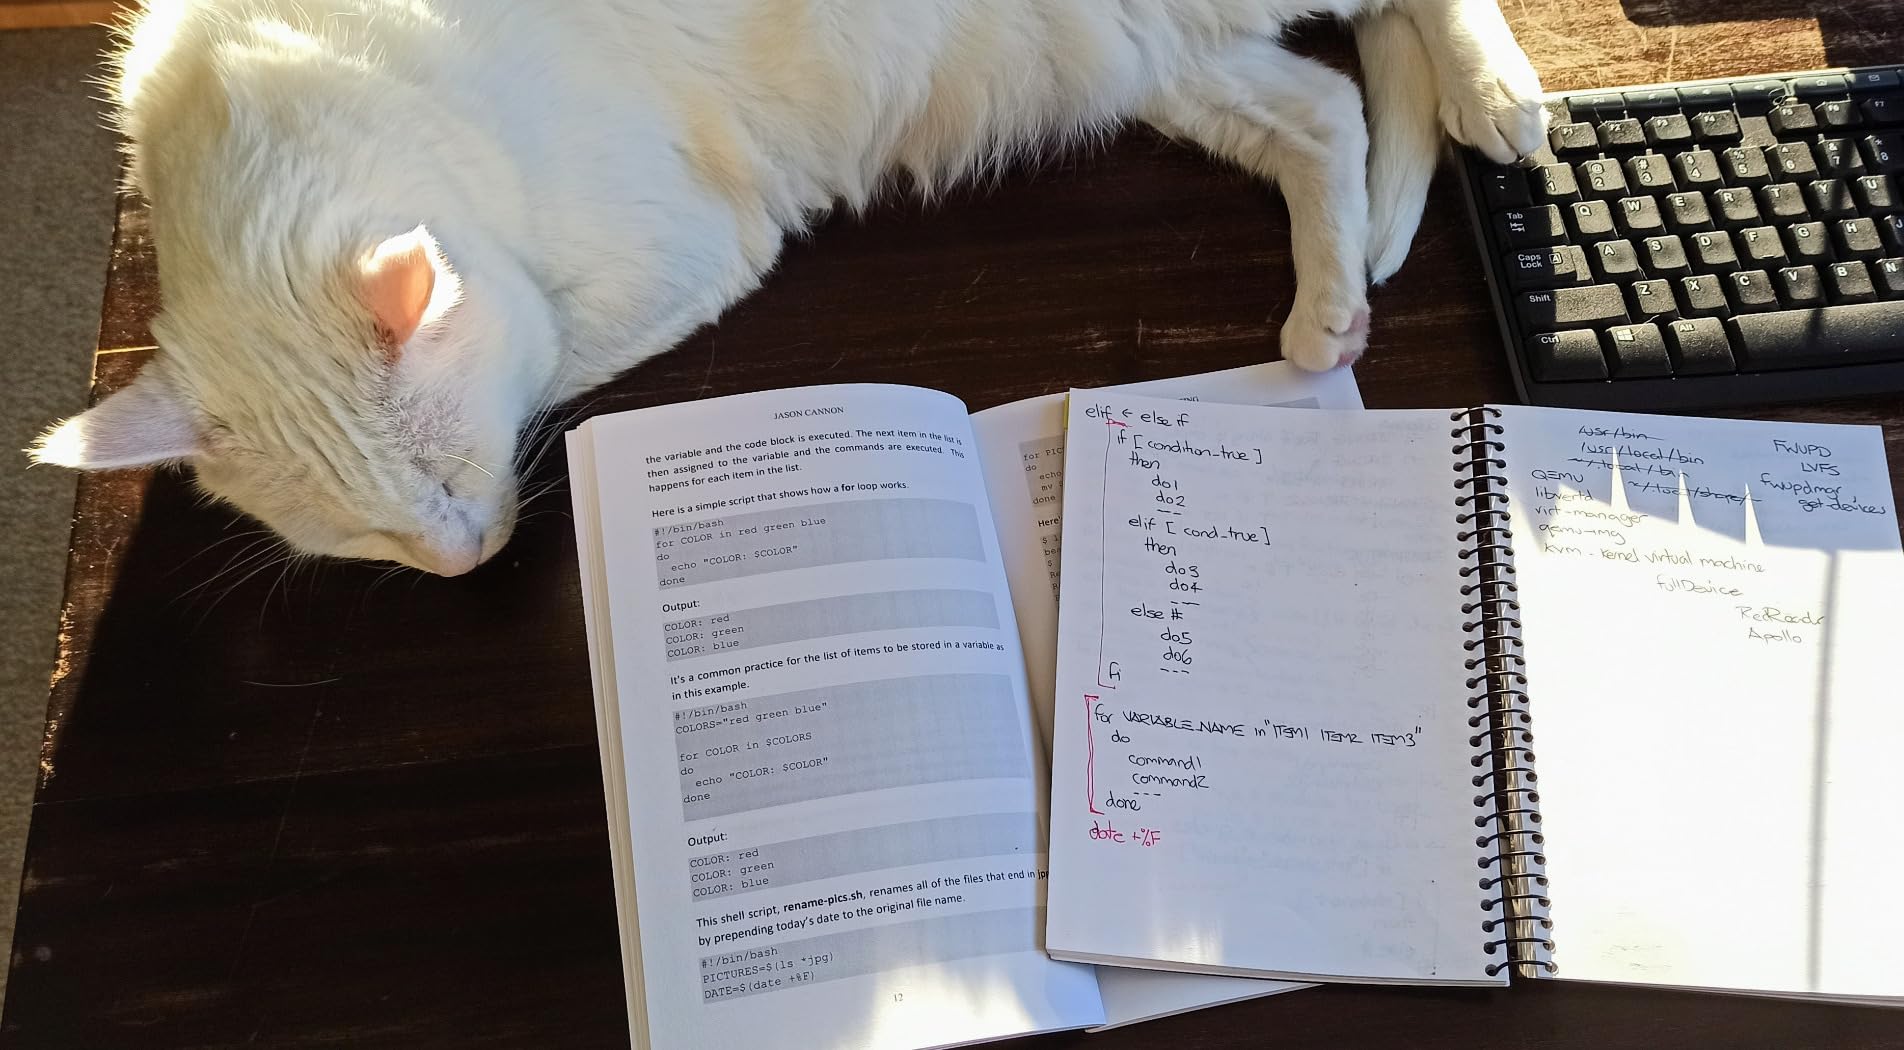 JASON CANNON
the variable and the code block is executed. The next item in the list is
then assigned to the variable and the commands are executed. This
happens for each item in the list.
Here is a simple script that shows how a for loop works.
#!/bin/bash
for COLOR in red green blue
do
echo "COLOR: $COLOR"
done
Output:
COLOR: red
COLOR: green
COLOR: blue
It's a common practice for the list of items to be stored in a variable as
in this example.
#!/bin/bash
COLORS="red green blue"
for COLOR in $COLORS
do
echo "COLOR: $COLOR"
done
Output:
COLOR: red
COLOR: green
COLOR: blue
This shell script, rename-pics.sh, renames all of the files that end in jpg
by prepending today's date to the original file name.
#!/bin/bash
PICTURES=$(ls *jpg)
DATE=$(date +%F)
12
for PIC
do
echo
mv
done
Here'
elif ← else if
if [condition_true]
then
do1
do2
---
elif [cond_true]
then
do3
do4
---
else #
do5
do6
---
fi
for VARIABLE_NAME in "ITEM1 ITEM2 ITEM3"
do
command1
command2
---
done
date +%F
/usr/bin
/usr/local/bin
~/.local/bin
~/.local/share/
QEMU
libvirtd
virt-manager
qemu-img
KVM - kernel virtual machine
FWUPD
LVFS
fwupdmgr
get-devices
fullDevice
Apollo
Tab
Caps Lock A
Shift
Ctrl
Alt
F1 F2 F3 F4 F5 F6 F7
! 1 @ 2 # 3 $ 4 % 5 ^ 6 & 7 * 8
Q W E R T Y U
A S D F G H J
Z X C V B N